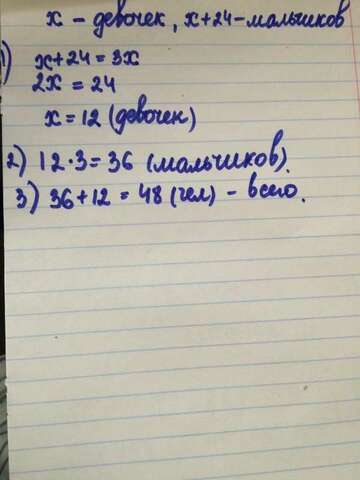 x – девочек, x+24 – мальчиков
1) x+24 = 3x
2x = 24
x = 12 (девочек)
2) 12·3 = 36 (мальчиков).
3) 36+12 = 48 (чел) – всего.